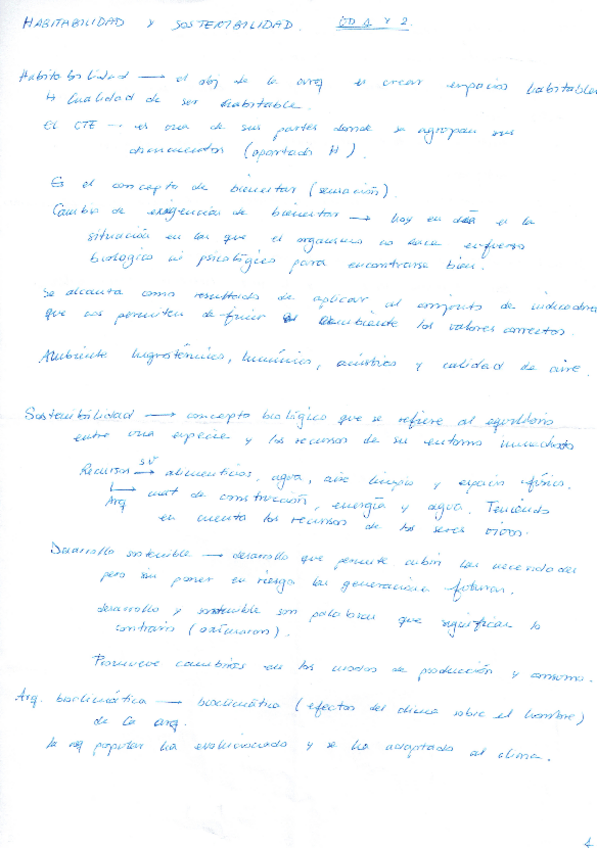 HABITABILIDAD Y SOSTENIBILIDAD. UD 1 Y 2.
Habitabilidad → el obj de la arq es crear espacios habitables
↳ Cualidad de ser habitable.
El CTE → es una de sus partes donde se agrupan sus
documentos (apartado H).
Es el concepto de bienestar (sensación).
Cambio de exigencia de bienestar → hoy en día es la
situación en la que el organismo no hace esfuerzo
biológico ni psicológico para encontrarse bien.
Se alcanza como resultado de aplicar al conjunto de indicadores
que nos permiten definir el ambiente los valores correctos.
Ambiente higrotérmico, lumínico, acústico y calidad de aire.
Sostenibilidad → concepto biológico que se refiere al equilibrio
entre una especie y los recursos de su entorno inmediato
Recursos → SV alimenticios, agua, aire limpio y espacio físico.
↳ Arq mat de construcción, energía y agua. Teniendo
en cuenta los recursos de los seres vivos.
Desarrollo sostenible → desarrollo que permite cubrir las necesidades
pero sin poner en riesgo las generaciones futuras.
desarrollo y sostenible son palabras que significan lo
contrario (oximoron).
Promueve cambios en los modos de producción y consumo.
Arq. bioclimática → bioclimática (efectos del clima sobre el hombre)
de la arq.
la arq popular ha evolucionado y se ha adaptado al clima.
1